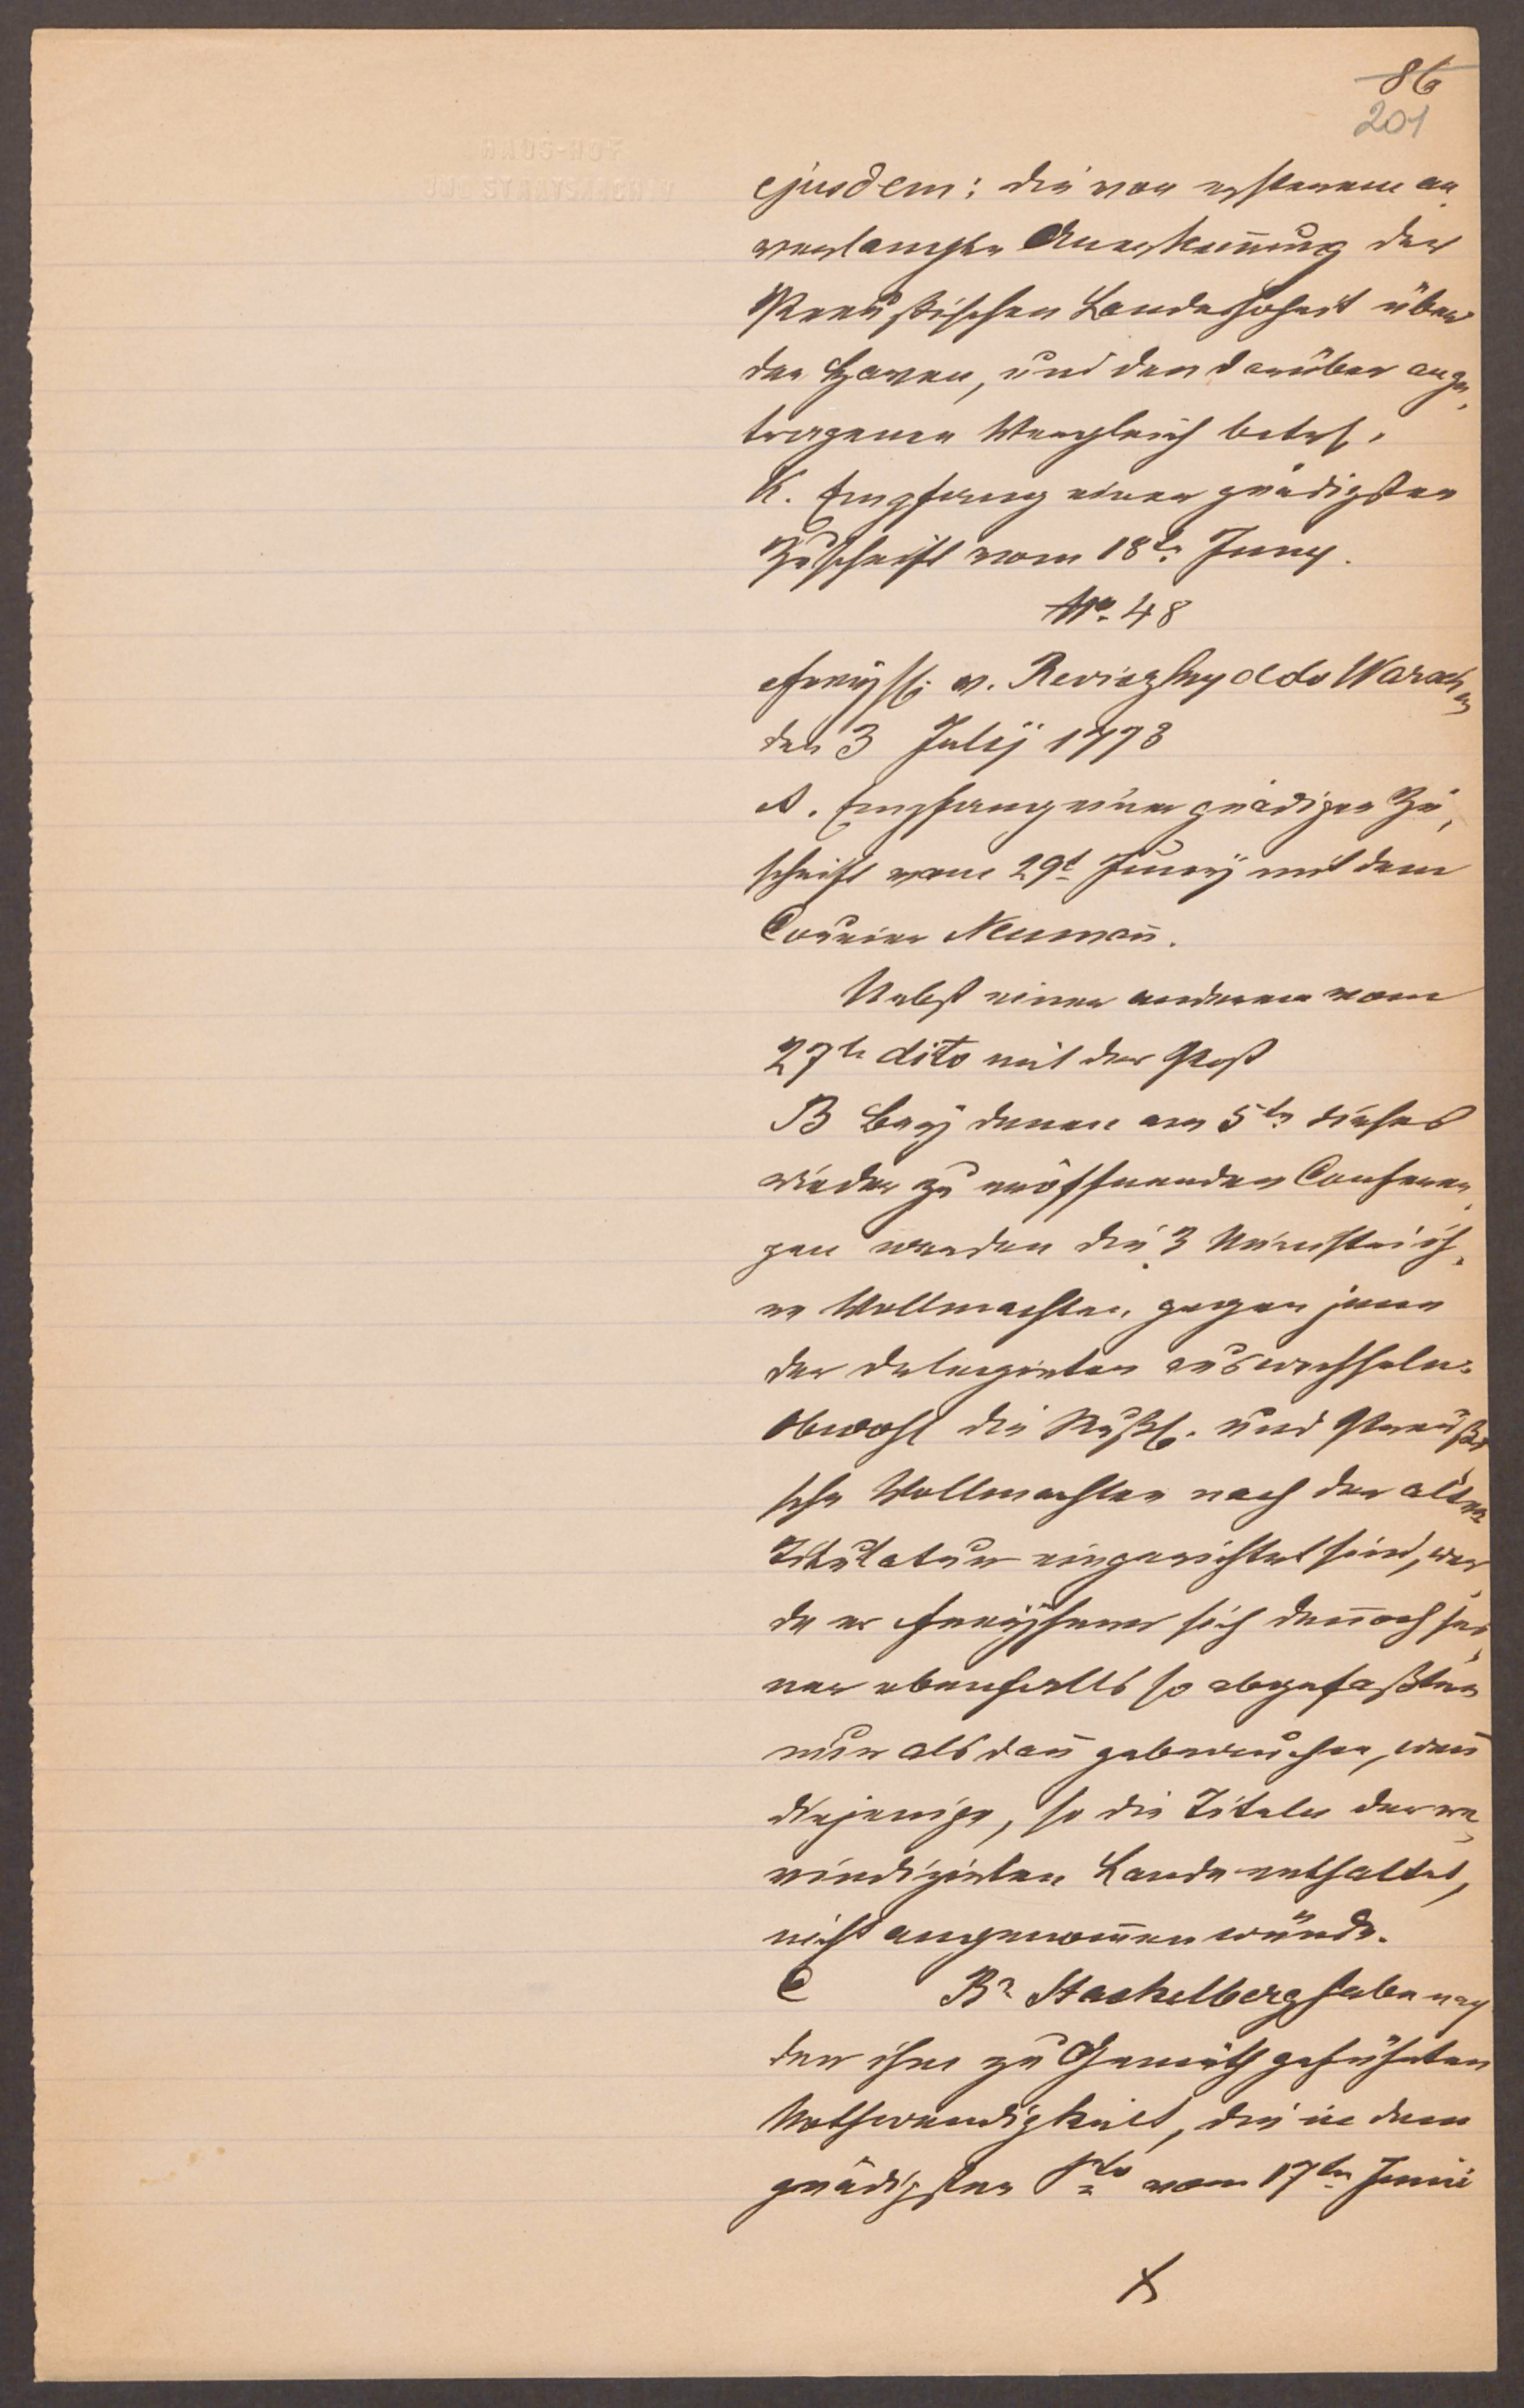 86
201
HAUS-HOF
UND STAATSARCHIV
ejusdem: die von ersterem an
verlangte Anerkennung der
Preußischen Landeshoheit über
den Haven, und den darüber ange,
tragenen Vergleich betrf.
K. Empfang einer gnädigsten
Zuschrift vom 18tn Juny.
No. 48
Freyh. v. Rewiczky ddo Warschau
den 3 Julÿ 1773
A. Empfang einer gnädigen Zu,
schrift vom 29t Junÿ mit dem
Courier Neuman̄.
Nebst einer anderen vom
27tn dito mit der Post
B Beÿ denen am 5tn dieses
wieder zu eröffnenden Conferen,
zen werden die 3 Ministri ih,
re Vollmachten gegen jene
der Delegirten auswechseln.
Obwohl die Rußl. und Preußi
sche Vollmachten nach der alten
Titulatur eingerichtet sind, wer
de er Freÿherr sich den̄och sei,
ner ebenfalls so abgefaßten
nur alsdan̄ gebrauchen, wen̄
diejenige, so die Titeln der re,
vindizirten Lande enthaltet,
nicht angenom̄en würde.
C Br. Stackelberg habe nach
der ihm zu Gemüth geführten
Nothwendigkeit, die in dem
gnädigsten Pto vom 17tn Junii